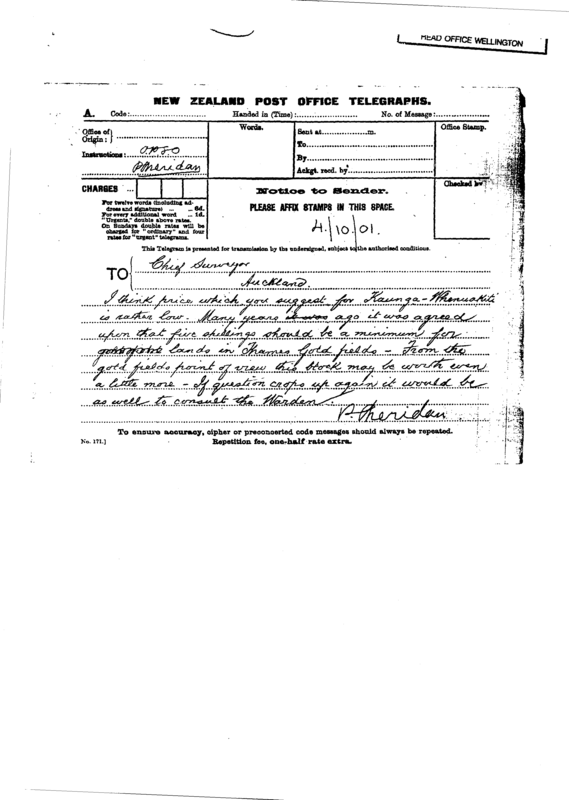 HEAD OFFICE WELLINGTON
NEW ZEALAND POST OFFICE TELEGRAPHS.
A. Code: Handed in (Time): No. of Message:
Office of Origin:
Instructions: O.P.S.O
P Sheridan
Words.
Sent at m.
To
By
Ackgt. recd. by
Office Stamp.
CHARGES ...
For twelve words (including ad-
dress and signature) ... 6d.
For every additional word ... 1d.
"Urgents," double above rates.
On Sundays double rates will be
charged for "ordinary" and four
rates for "urgent" telegrams.
Notice to Sender.
PLEASE AFFIX STAMPS IN THIS SPACE.
4/10/01.
Checked by
This Telegram is presented for transmission by the undersigned, subject to the authorised conditions.
TO Chief Surveyor
Auckland.
I think price which you suggest for Kaunga-Whenuakite
is rather low. Many years it was ago it was agreed
upon that five shillings should be a minimum for
lands in Thames Gold fields - From the
gold fields point of view this block may be worth even
a little more - If question crops up again it would be
as well to consult the Warden
P. Sheridan
To ensure accuracy, cipher or preconcerted code messages should always be repeated.
No. 171.] Repetition fee, one-half rate extra.